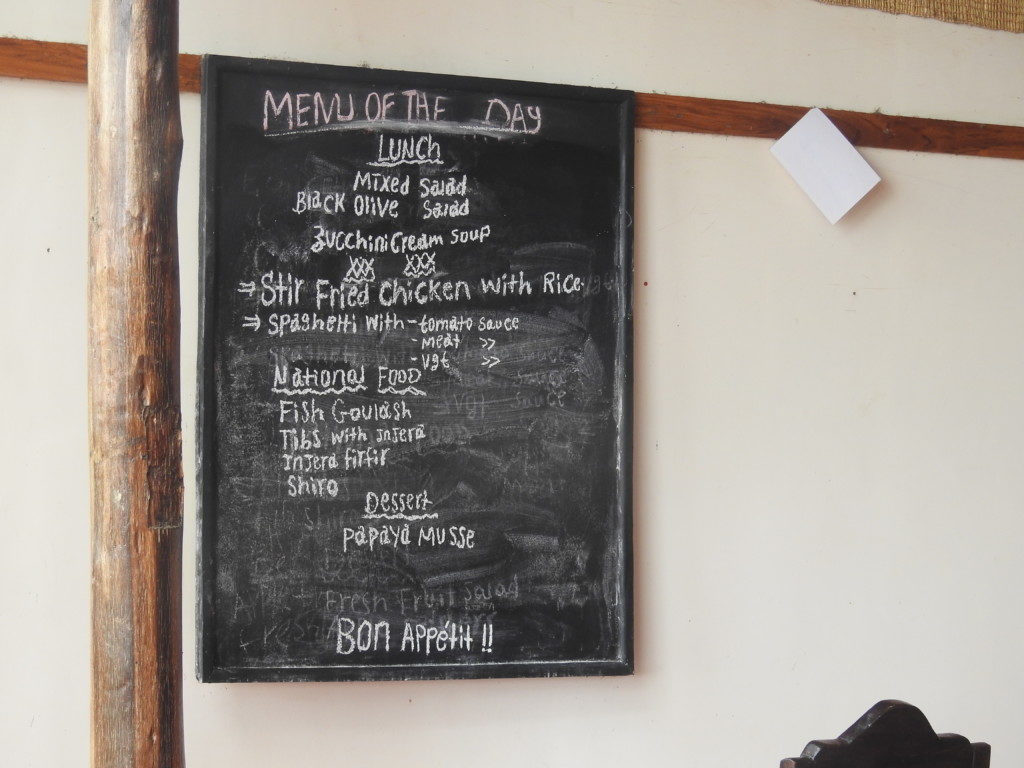 MENU OF THE DAY
LUNCH
Mixed Salad
Black Olive Salad
Zucchini Cream Soup
XXX XXX
⇒ Stir Fried chicken with Rice.
⇒ spaghetti with - tomato sauce
- meat >>
- vgt >>
National Food
Fish Goulash
Tibs with injera
injera firfir
Shiro
Dessert
papaya Musse
Fresh Fruit Salad
BON Appétit !!